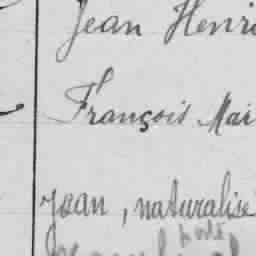 Jean Henri
François Mar
Jean, naturalisé